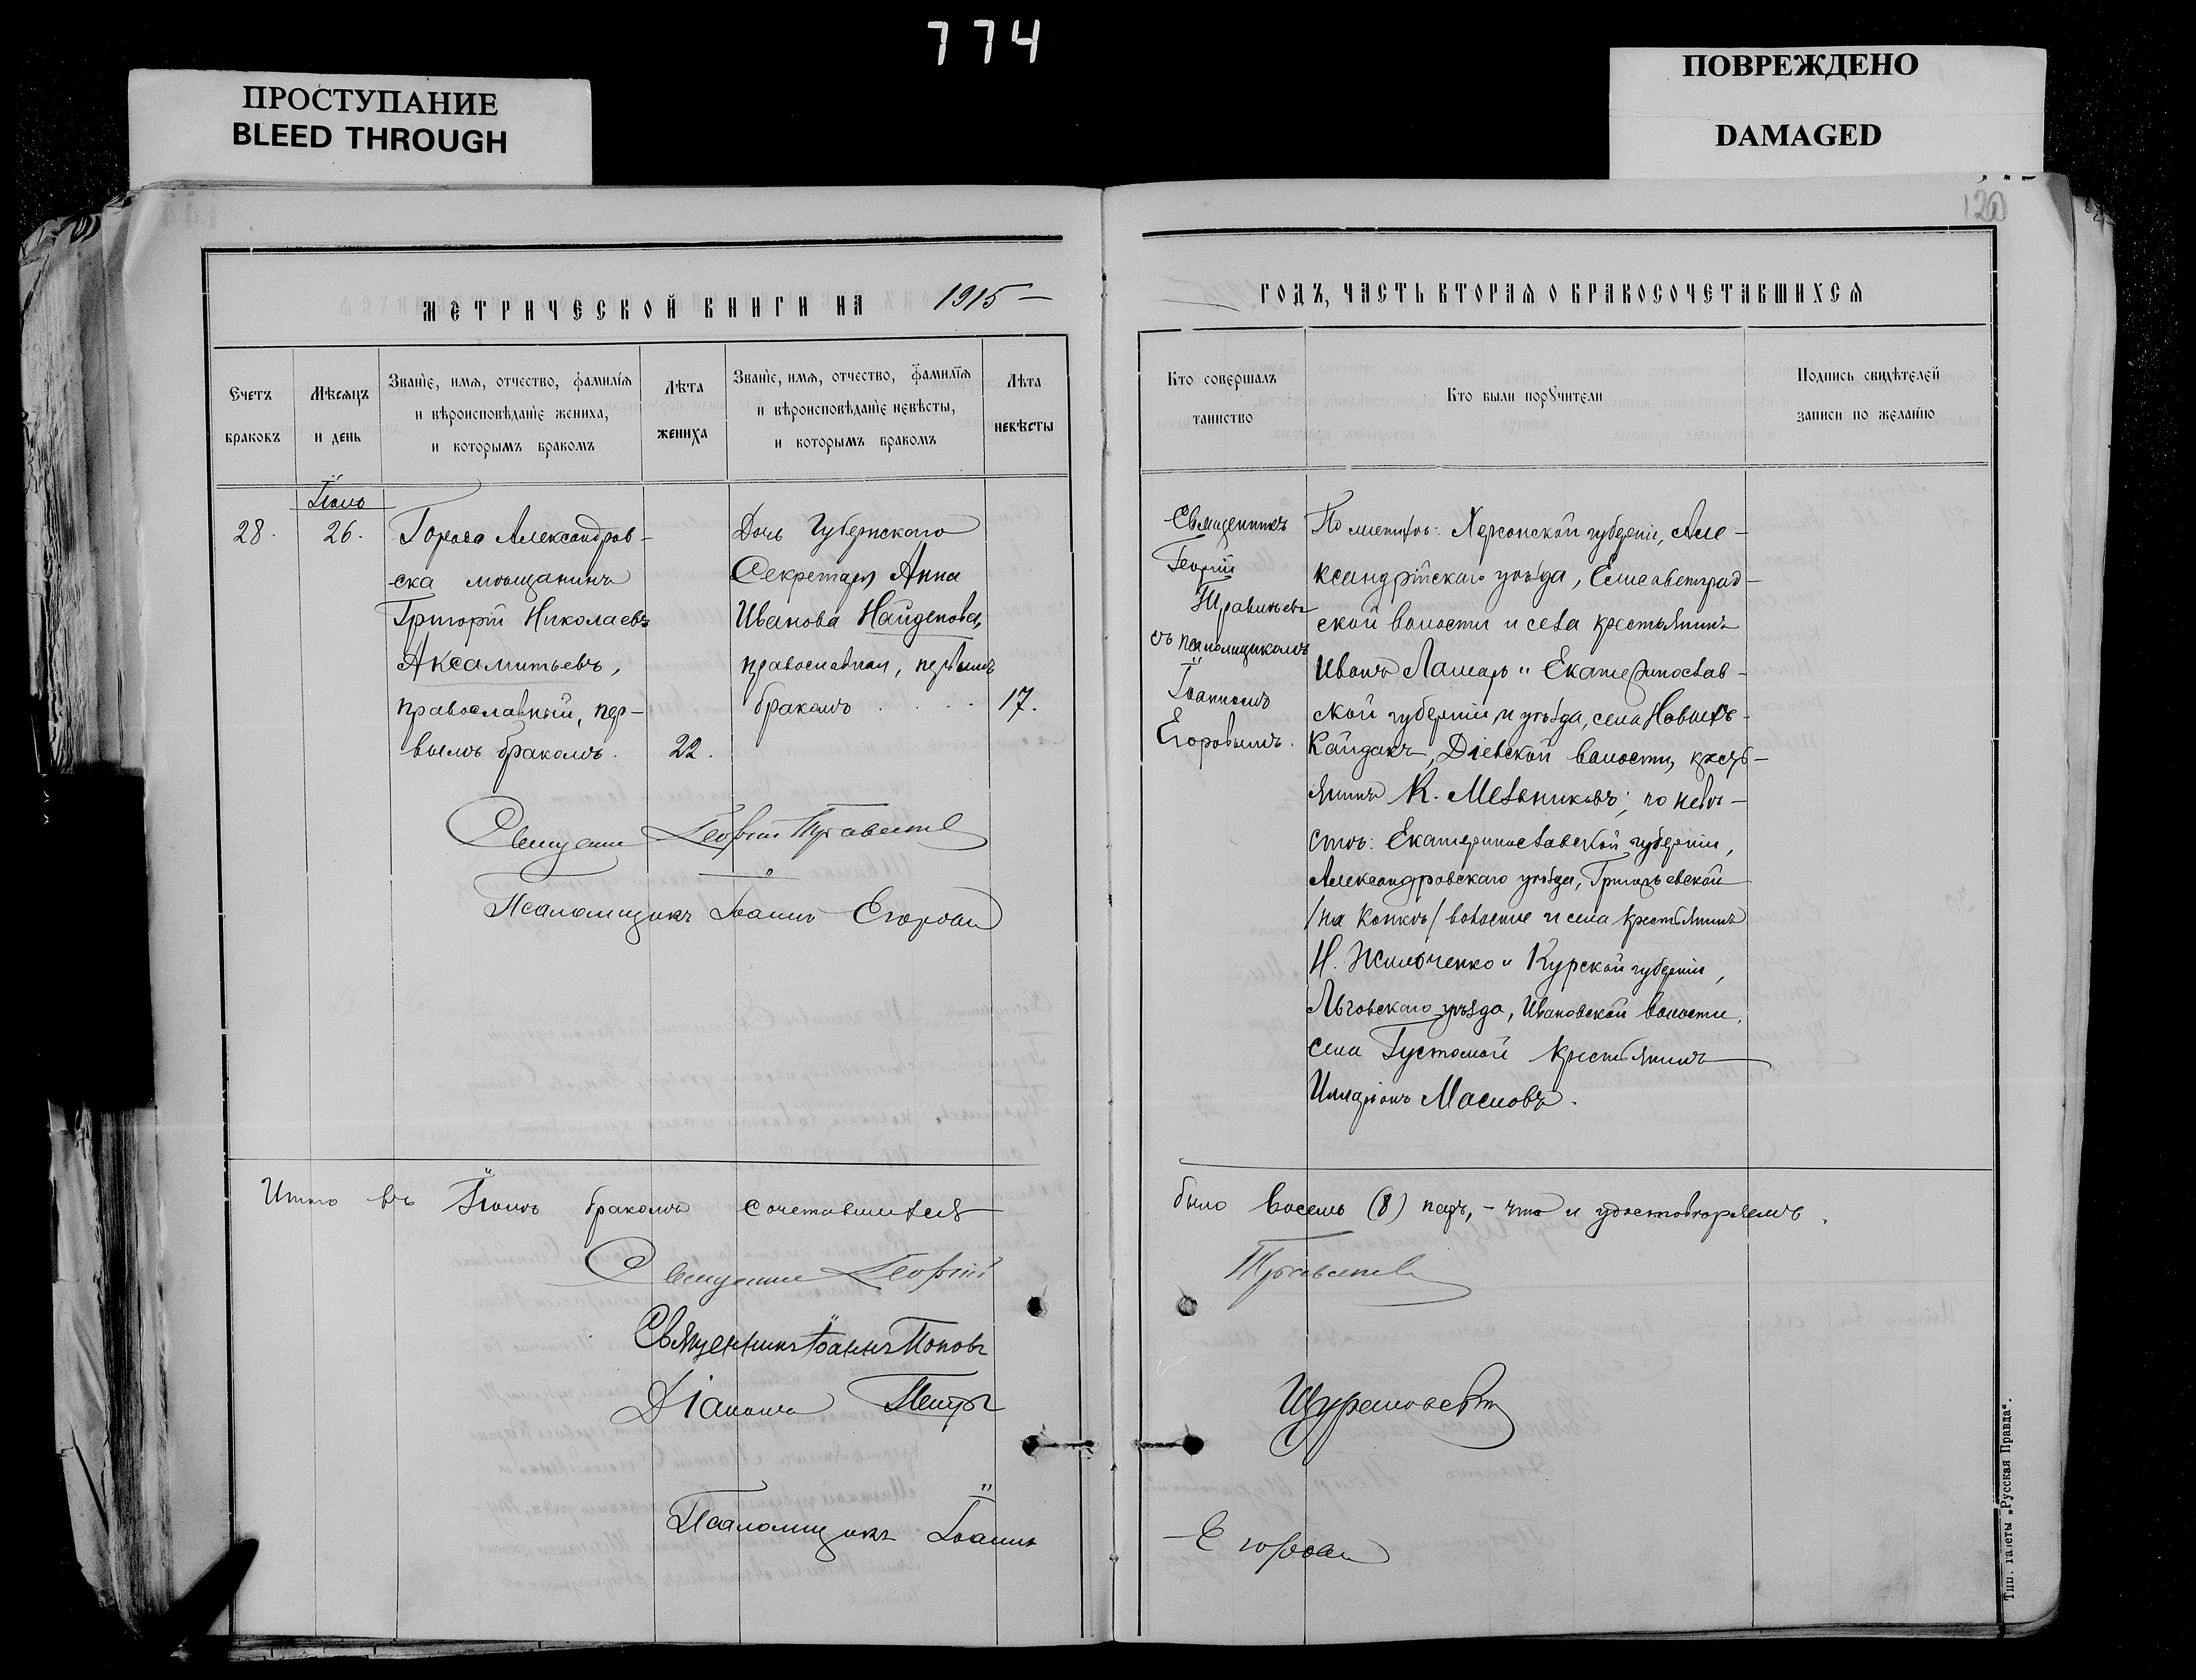 774
ПРОСТУПАНИЕ
BLEED THROUGH
ПОВРЕЖДЕНО
DAMAGED
120
МЕТРИЧЕСКОЙ КНИГИ НА 1915
Счетъ браковъ
Мѣсяцъ и день
Званіе, имя, отчество, фамилія
и вѣроисповѣданіе жениха,
и которымъ бракомъ
Лѣта жениха
Званіе, имя, отчество, фамилія
и вѣроисповѣданіе невѣсты,
и которымъ бракомъ
Лѣта невѣсты
28.
26.
Города Александров-
ска мѣщанинъ
Григорій Николаевъ
Аксаментьевъ,
православный, пер-
вымъ бракомъ.
22.
Дочь Губернскаго
Секретаря Анна
Иванова Найденова,
православная, первымъ
бракомъ
17.
Священникъ Георгій
Псаломщикъ Іоаннъ Егоровъ
Итого въ бракомъ сочетавшихся
Священникъ Георгій
Священникъ Іоаннъ Поповъ
Діаконъ Петръ
Псаломщикъ Іоаннъ
ГОДЪ, ЧАСТЬ ВТОРАЯ О БРАКОСОЧЕТАВШИХСЯ
Кто совершалъ
таинство
Кто были поручители
Подпись свидѣтелей
записи по желанію
Священникъ
Георгій
съ псаломщикомъ
Іоанномъ
Егоровымъ.
По женихѣ: Херсонской губерніи, Але-
ксандрійскаго уѣзда, Елисаветград-
ской волости и села крестьянинъ
Иванъ Ламарь и Екатеринослав-
ской губерніи и уѣзда, села Новыхъ-
Кайдакъ, Діевской волости, кресть-
янинъ К. Мельниковъ; по невѣ-
стѣ: Екатеринославской губерніи,
Александровскаго уѣзда, Григорьевской
/на Конкѣ/ волости и села крестьянинъ
Н. и Курской губерніи,
Льговскаго уѣзда, Ивановской волости,
села Густомой крестьянинъ
Иларіонъ Масловъ.
было восемь (8) паръ, - что и удостовѣряемъ.
Егоровъ
Тип. газеты „Русская Правда“.